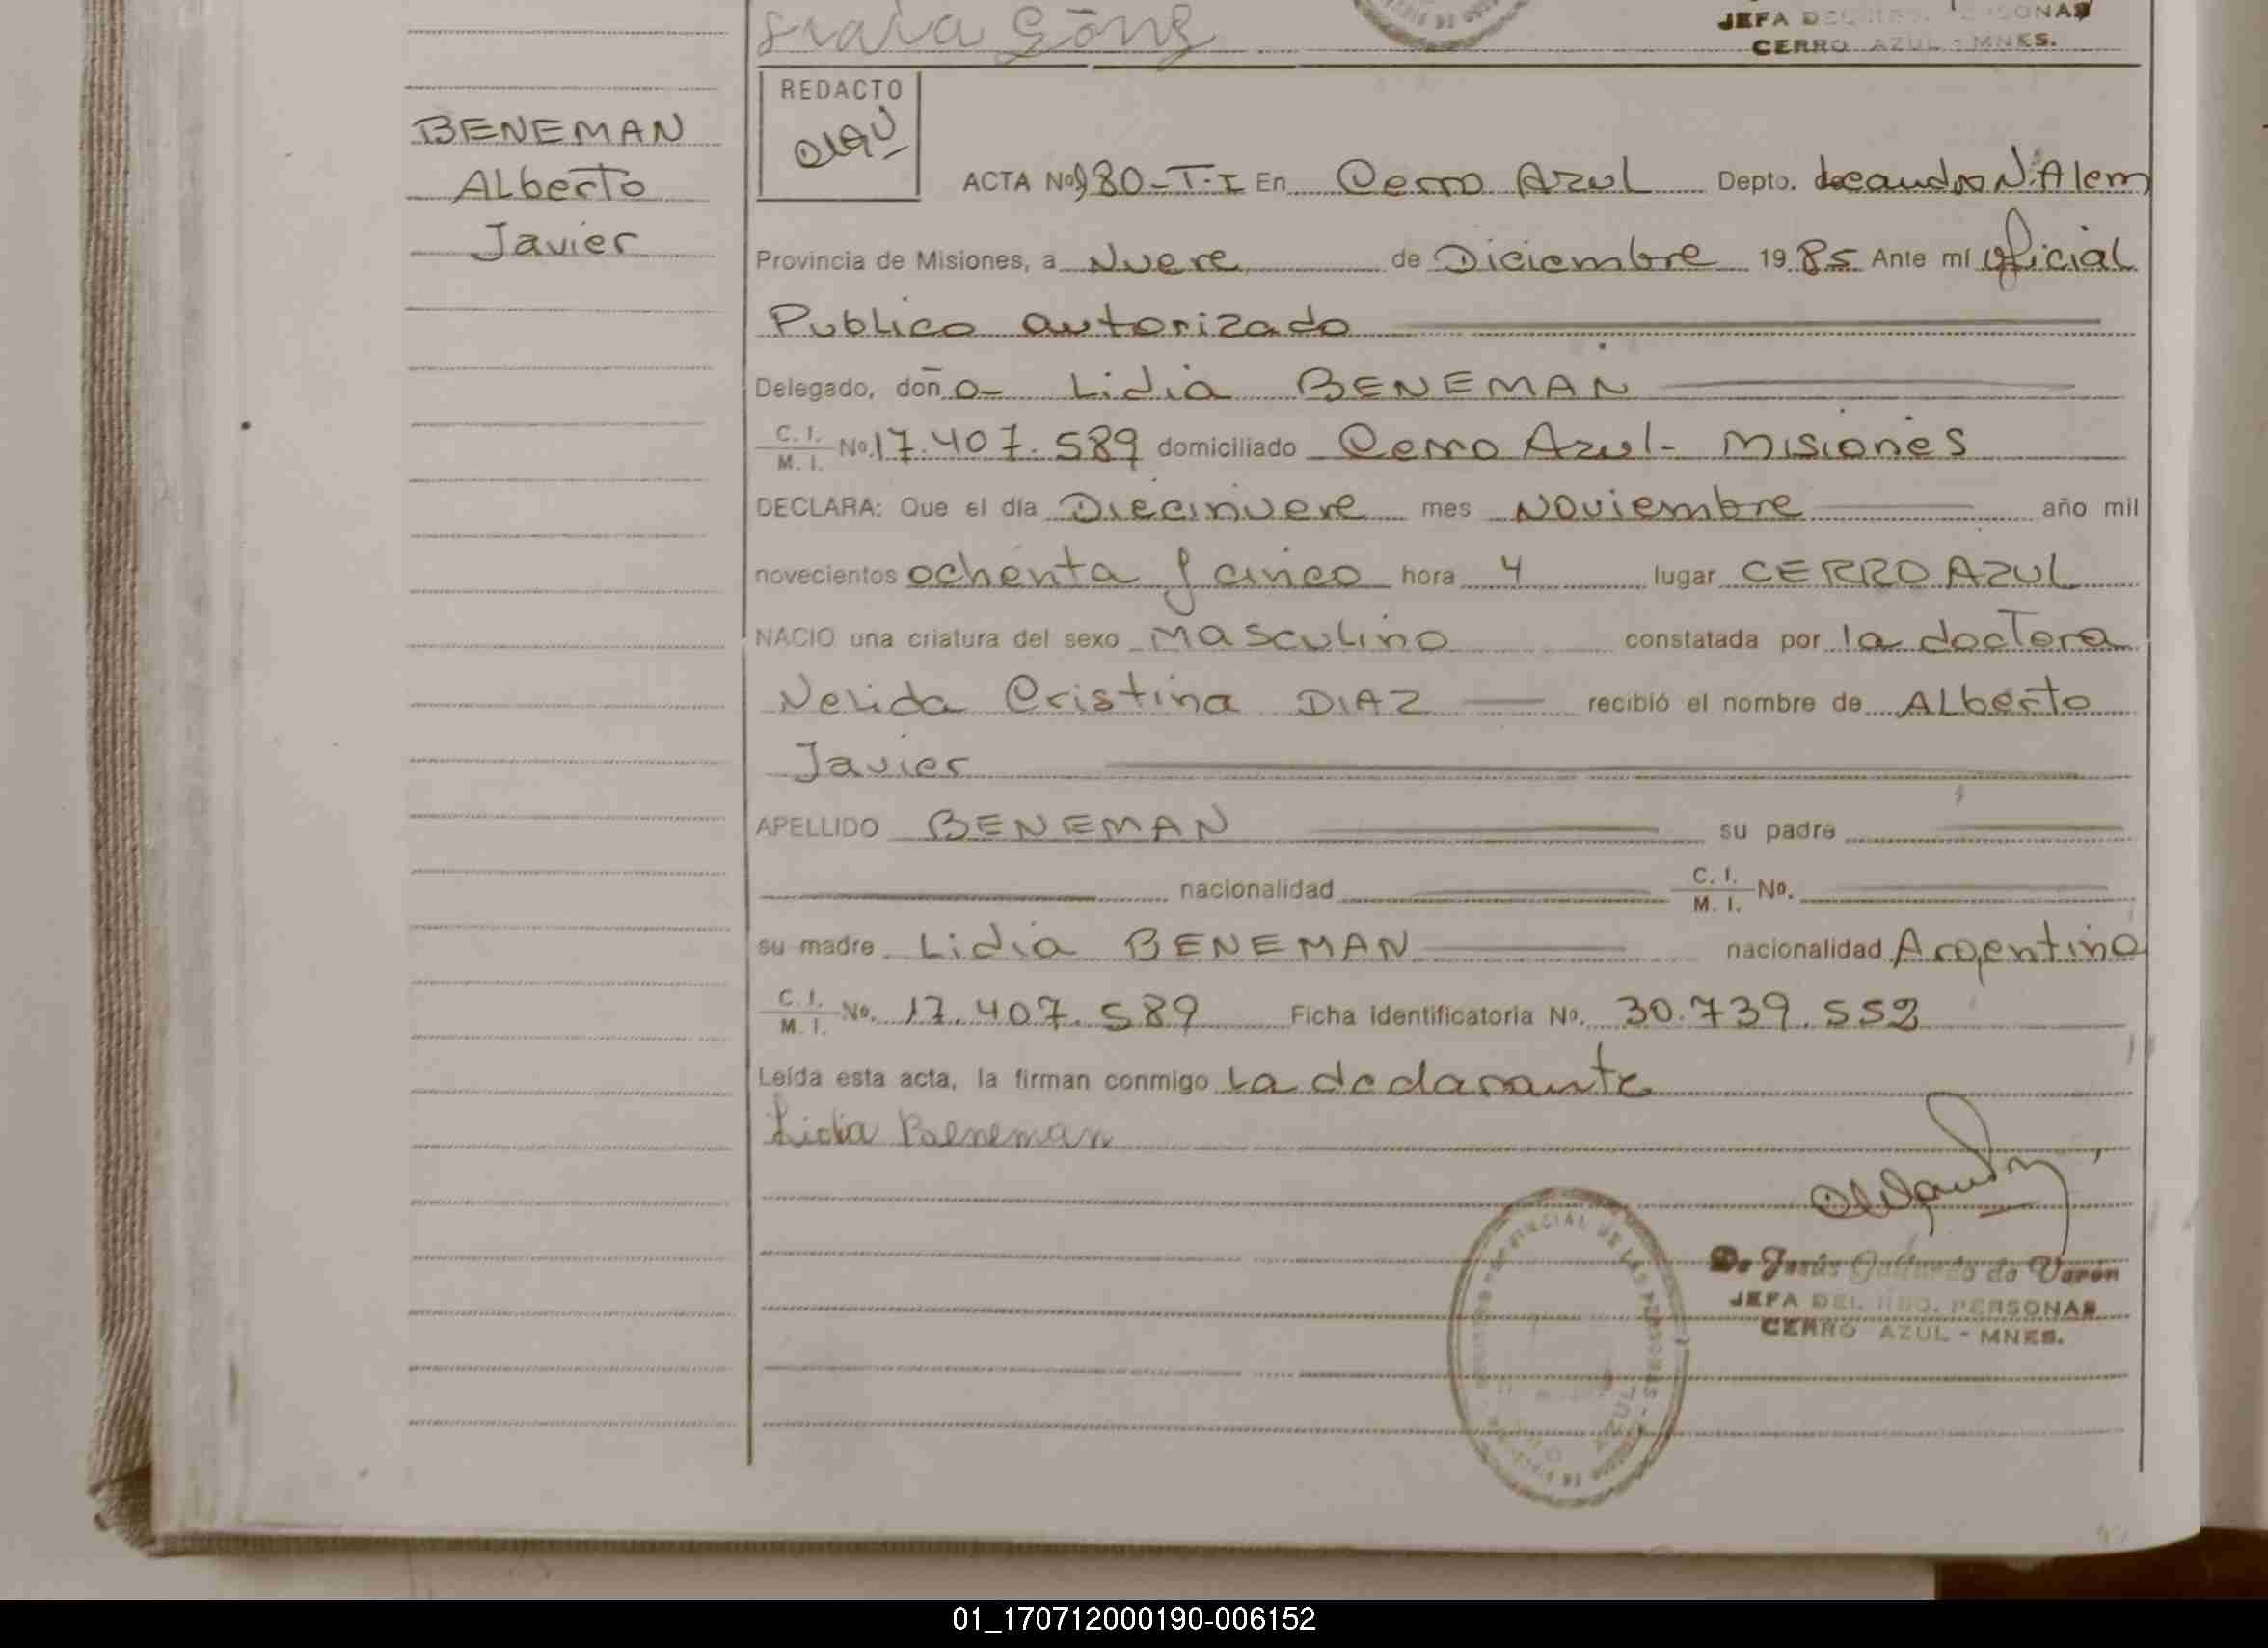 JEFA DEL REG. PERSONAS
CERRO AZUL - MNES.
BENEMAN
ALberto
Javier
REDACTO
ACTA Nº 280-T-I En Cerro Azul Depto. Leandro N. Alem
Provincia de Misiones, a Nueve de Diciembre 1985 Ante mí oficial
Publico autorizado
Delegado, doña Lidia BENEMAN
C. I. / M. I. Nº 17.407.589 domiciliado Cerro Azul - Misiones
DECLARA: Que el día Diecinueve mes Noviembre año mil
novecientos ochenta y cinco hora 4 lugar CERRO AZUL
NACIO una criatura del sexo Masculino constatada por la doctora
Nelida Cristina DIAZ recibió el nombre de ALberto
Javier
APELLIDO BENEMAN su padre
nacionalidad C. I. / M. I. Nº.
su madre Lidia BENEMAN nacionalidad Argentina
C. I. / M. I. Nº. 17.407.589 Ficha identificatoria Nº. 30.739.552
Leída esta acta, la firman conmigo La declarante
Lidia Beneman
De Jesús Gallardo de Varón
JEFA DEL REG. PERSONAS
CERRO AZUL - MNES.
PROVINCIAL DE LAS PERSONAS
AZUL
01_170712000190-006152